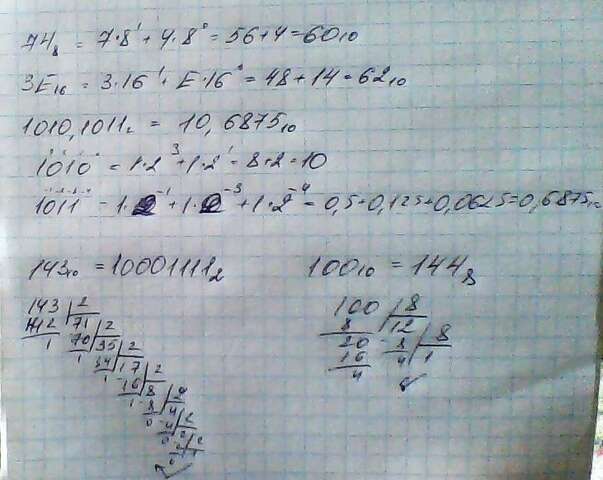 74₈ = 7·8¹+4·8⁰=56+4=60₁₀
3E₁₆ = 3·16¹+E·16⁰=48+14=62₁₀
1010,1011₂ = 10,6875₁₀
1010 = 1·2³+1·2¹=8+2=10
1011 = 1·2⁻¹+1·2⁻³+1·2⁻⁴=0,5+0,125+0,0625=0,6875₁₀
143₁₀ = 10001111₂
100₁₀ = 144₈
143 2
142 71 2
1 70 35 2
1 34 17 2
1 16 8 2
1 8 4 2
0 4 2 2
0 2 1
0
100 8
8 12 8
20 8 1
16 4
4